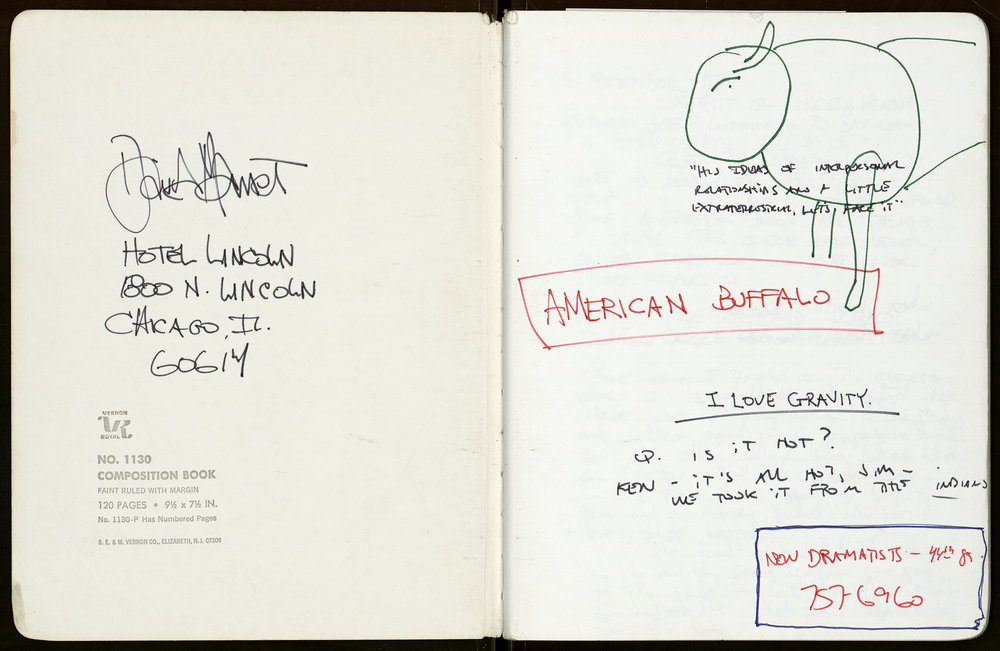 David Mamet
HOTEL LINCOLN
1800 N. LINCOLN
CHICAGO, IL.
60614
VERNON
VR
ROYAL
NO. 1130
COMPOSITION BOOK
FAINT RULED WITH MARGIN
120 PAGES • 9½ x 7½ IN.
No. 1130-P Has Numbered Pages
S. E. & M. VERNON CO., ELIZABETH, N.J. 07208
"HIS IDEAS OF INTERPERSONAL
RELATIONSHIPS ARE A LITTLE
EXTRATERRESTRIAL, LETS FACE IT"
AMERICAN BUFFALO
I LOVE GRAVITY.
Q. IS IT HOT?
KEN - IT'S ALL HOT, JIM -
WE TOOK IT FROM THE INDIANS
NEW DRAMATISTS - 44th St.
757-6960